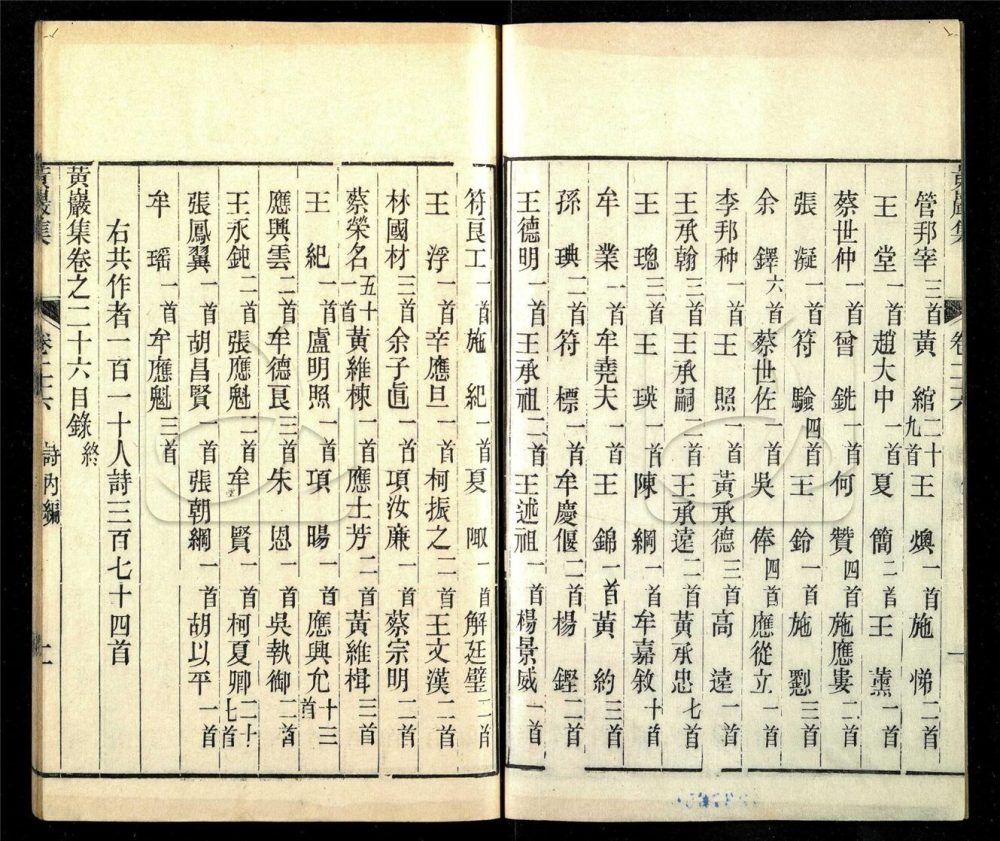 黃巖集 卷二十六 一
管邦宰 三首 黃綰 二十九首 王燠 一首 施悌 二首
王堂 一首 趙大中 一首 夏簡 二首 王薰 一首
蔡世仲 一首 曾銑 一首 何贊 四首 施應婁 二首
張凝 一首 符驗 四首 王鈴 一首 施懇 三首
余鐸 六首 蔡世佐 一首 吳俸 四首 應從立 一首
李邦种 一首 王照 一首 黃承德 三首 高遠 一首
王承翰 三首 王承嗣 二首 王承遠 二首 黃承忠 七首
王璁 三首 王瑛 一首 陳綱 一首 牟嘉敘 十首
牟業 一首 牟堯夫 一首 王錦 一首 黃約 三首
孫璵 二首 符標 一首 牟慶偃 二首 楊鏗 二首
王德明 一首 王承祖 二首 王述祖 一首 楊景威 一首
符良工 一首 施紀 一首 夏 一首 解廷璧 二首
王浮 一首 辛應旦 一首 柯振之 二首 王文漢 二首
林國材 三首 余子直 一首 項汝廉 一首 蔡宗明 二首
蔡榮名 五十一首 黃維楝 一首 應士芳 二首 黃維楫 三首
王紀 一首 盧明照 一首 項暘 一首 應興允 十三首
應興雲 二首 牟德良 三首 朱恩 一首 吳執御 二首
王永鈍 二首 張應魁 二首 牟賢 一首 柯夏卿 二十七首
張鳳翼 一首 胡昌賢 一首 張朝綱 一首 胡以平 一首
牟瑶 一首 牟應魁 三首
右共作者一百一十人詩三百七十四首
黃巖集卷之二十六目錄終
黃巖集 卷二十六 詩內編 二